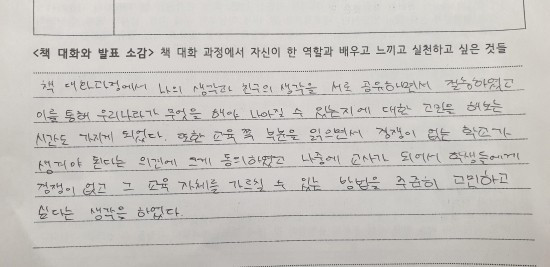 <책 대화와 발표 소감> 책 대화 과정에서 자신이 한 역할과 배우고 느끼고 실천하고 싶은 것들
책 대화과정에서 나의 생각과 친구의 생각을 서로 공유하면서 질능하였고
이를 통해 우리나라가 무엇을 해야 나아질 수 있는지에 대한 고민을 해보는
시간도 가지게 되었다. 또한 교육 쪽 부분을 읽으면서 경쟁이 없는 학교가
생겨야 된다는 의견에 크게 동의하였고 나중에 교사가 되어서 학생들에게
경쟁이 없고 그 교육 자체를 가르칠 수 있는 방법을 주금히 고민하고
싶다는 생각을 하였다.